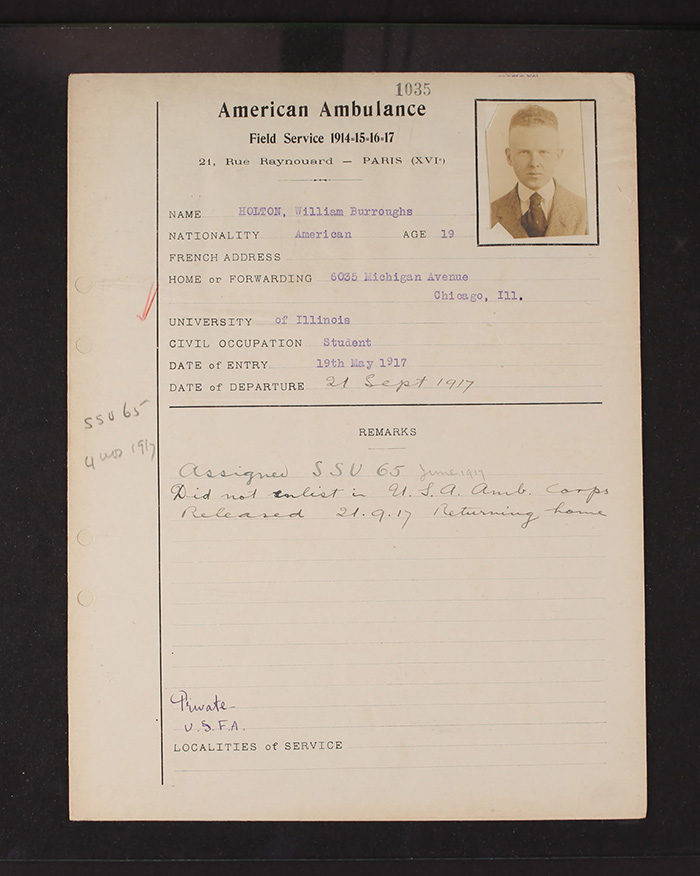 1035
American Ambulance
Field Service 1914-15-16-17
21, Rue Raynouard — PARIS (XVIe)
NAME HOLTON, William Burroughs
NATIONALITY American AGE 19
FRENCH ADDRESS
HOME or FORWARDING 6035 Michigan Avenue
Chicago, Ill.
UNIVERSITY of Illinois
CIVIL OCCUPATION Student
DATE of ENTRY 19th May 1917
DATE of DEPARTURE 21 Sept 1917
SSU 65
4 mos 1917
REMARKS
Assigned SSU 65 June 1917
Did not enlist in U.S.A. Amb. Corps
Released 21.9.17 Returning home
Private
U.S.F.A.
LOCALITIES of SERVICE